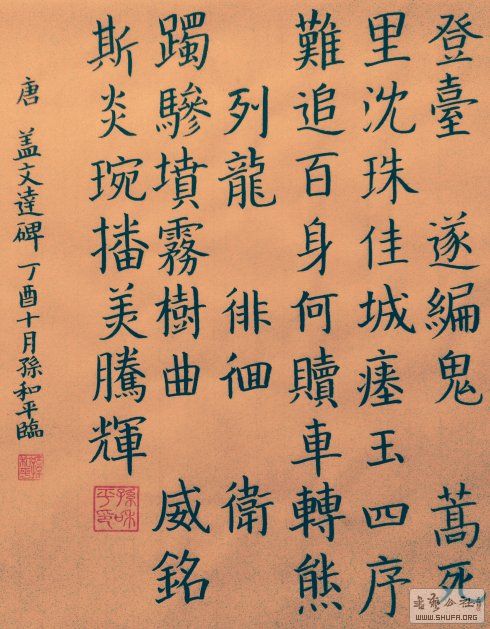 登臺 遂編鬼 蒿死
里沈珠佳城瘞玉四序
難追百身何贖車轉熊
列龍 徘徊 衛
躅驂墳霧樹曲 威銘
斯炎琬播美騰輝
唐 盖文達碑 丁酉十月孫和平臨
孫和平印
WWW.SHUFA.ORG